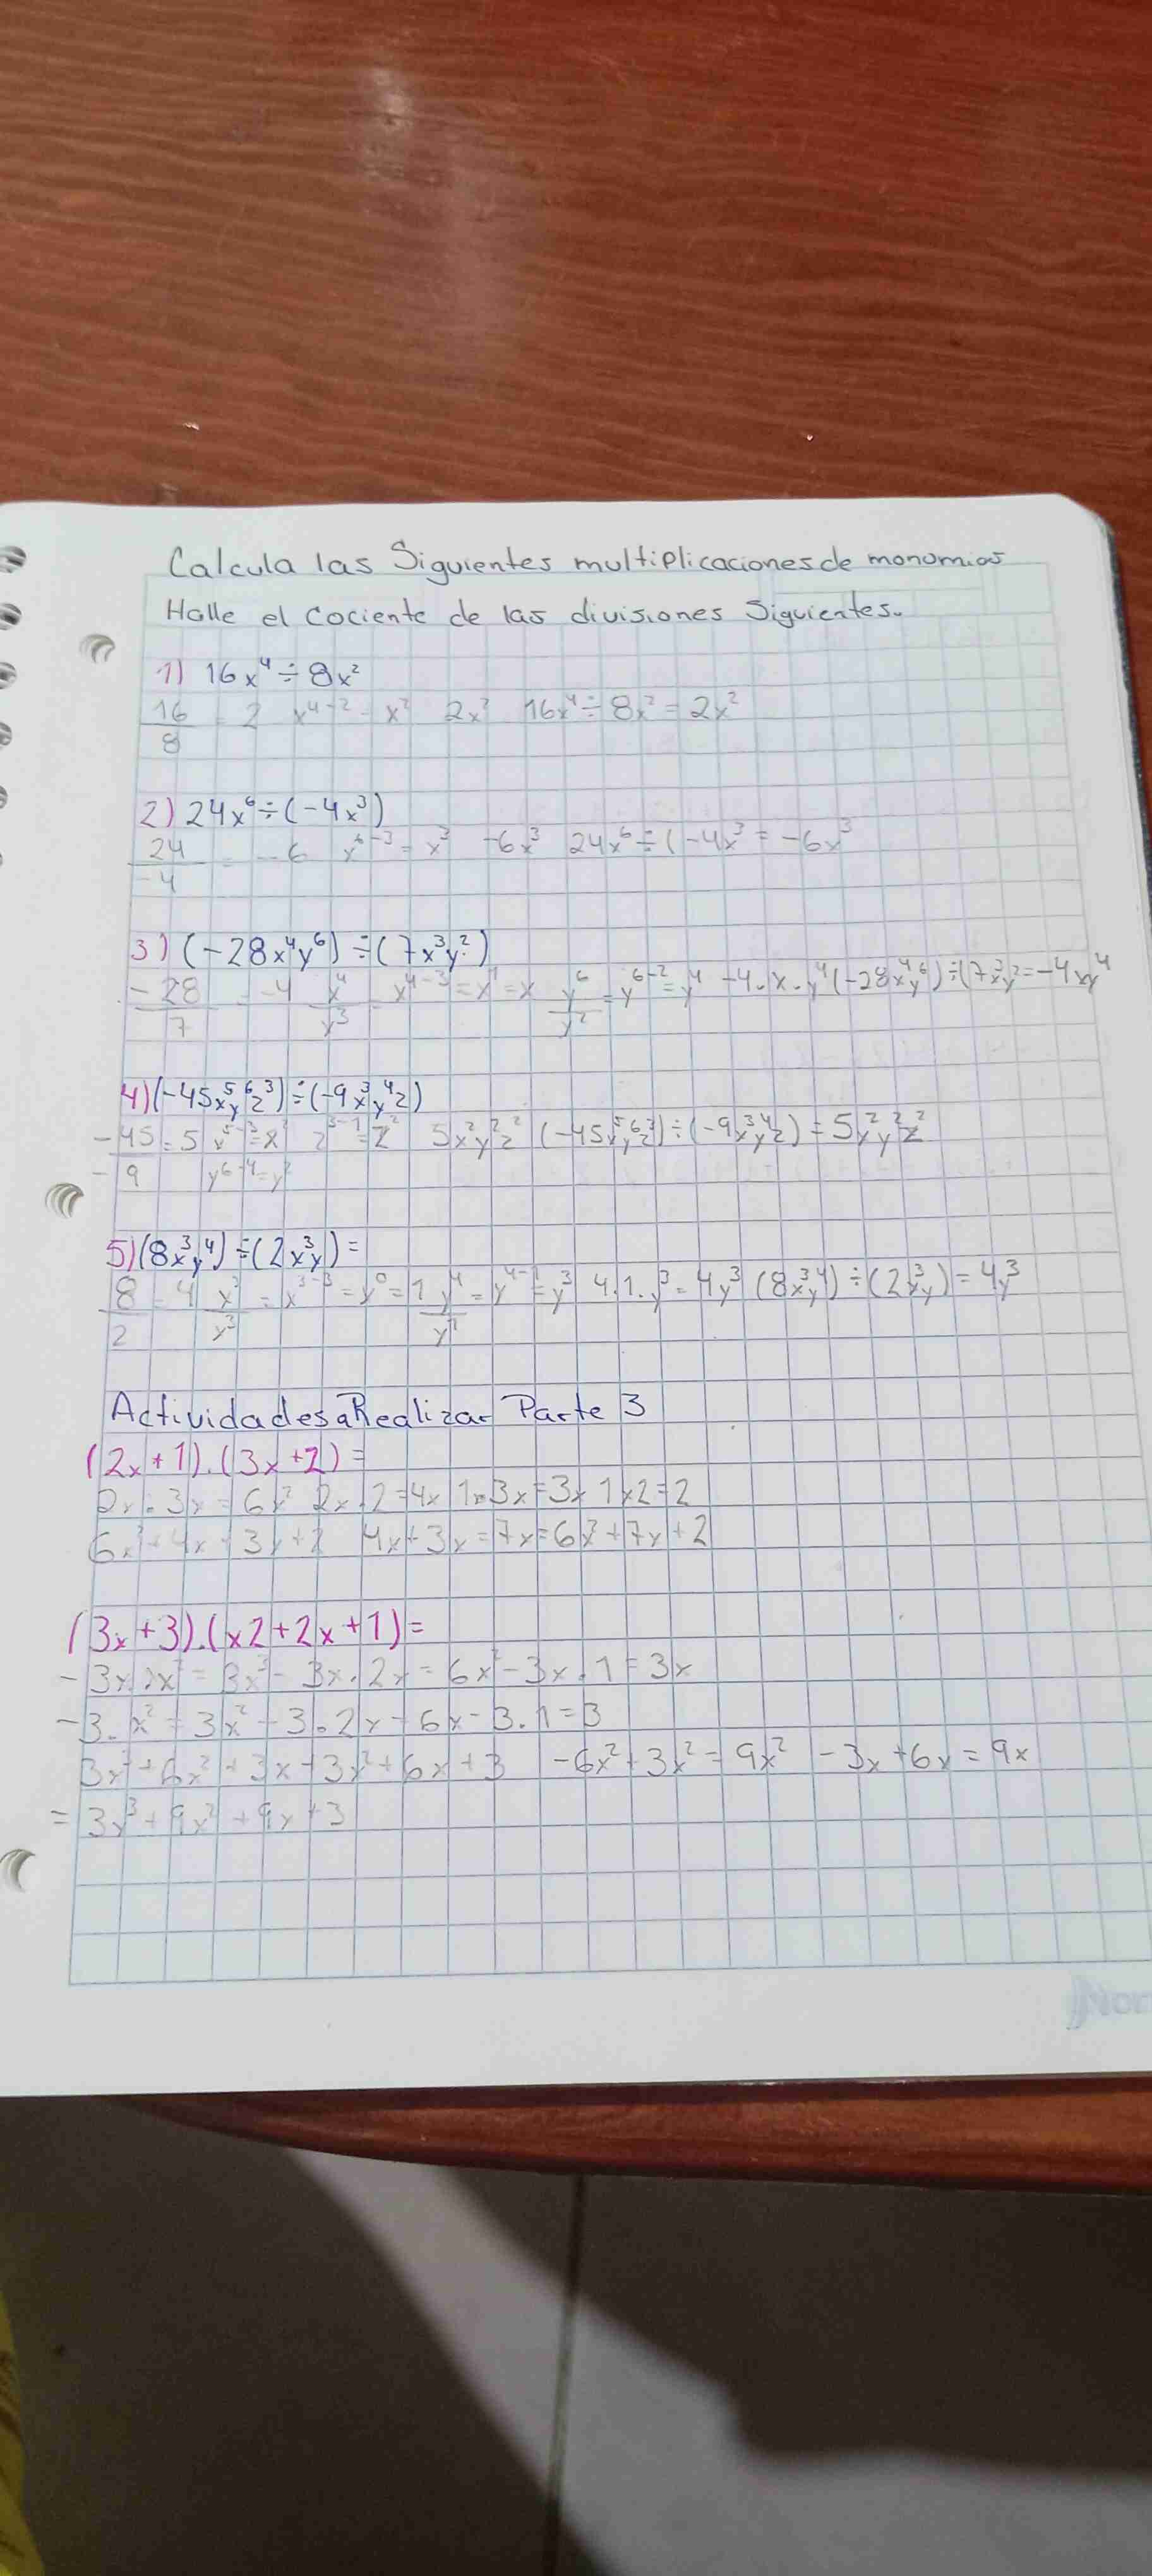 Calcula las Siguientes multiplicaciones de monomios
Halle el cociente de las divisiones Siguientes.
1) 16x⁴ ÷ 8x²
16/8 = 2 x⁴⁻² = x² 2x² 16x⁴ ÷ 8x² = 2x²
2) 24x⁶ ÷ (-4x³)
24/-4 = -6 x⁶⁻³ = x³ -6x³ 24x⁶ ÷ (-4x³ = -6x³
3) (-28x⁴y⁶) ÷ (7x³y²)
-28/7 = -4 x⁴/x³ = x⁴⁻³ = x¹ = x y⁶/y² = y⁶⁻² = y⁴ -4·x·y⁴ (-28x⁴y⁶) ÷ (7x³y² = -4xy⁴
4) (-45x⁵y⁶z³) ÷ (-9x³y⁴z)
-45/-9 = 5 x⁵⁻³ = x² z³⁻¹ = z² 5x²y²z² (-45x⁵y⁶z³) ÷ (-9x³y⁴z) = 5x²y²z²
y⁶⁻⁴ = y²
5) (8x³y⁴) ÷ (2x³y) =
8/2 = 4 x³/x³ = x³⁻³ = x⁰ = 1 y⁴/y¹ = y⁴⁻¹ = y³ 4·1·y³ = 4y³ (8x³y⁴) ÷ (2x³y) = 4y³
Actividades a Realizar Parte 3
(2x+1).(3x+2) =
2x·3x = 6x² 2x·2 = 4x 1·3x = 3x 1x2 = 2
6x²+4x+3x+2 4x+3x = 7x = 6x²+7x+2
(3x+3).(x2+2x+1) =
- 3x·x² = 3x³ - 3x·2x = 6x² - 3x·1 = 3x
- 3·x² = 3x² - 3·2x = 6x - 3·1 = 3
3x³+6x²+3x+3x²+6x+3 -6x²+3x² = 9x² -3x+6x = 9x
= 3x³+9x²+9x+3
Nor